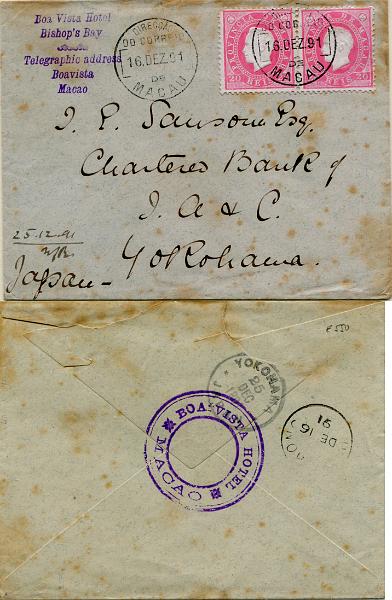 Boa Vista Hotel
Bishop's Bay
Telegraphic address
Boavista
Macao
DIRECÇÃO
DO CORREIO
16.DEZ.91
DE
MACAU
PROVINCIA
20 REIS
REIS 20
16.DEZ.91
DE
MACAU
J. E. Sansom Esq.
Chartered Bank of
I. A & C.
Yokohama.
Japan
25.12.91
£550
YOKOHAMA
25
DEC
BOA VISTA HOTEL
MACAO
DE 16
91